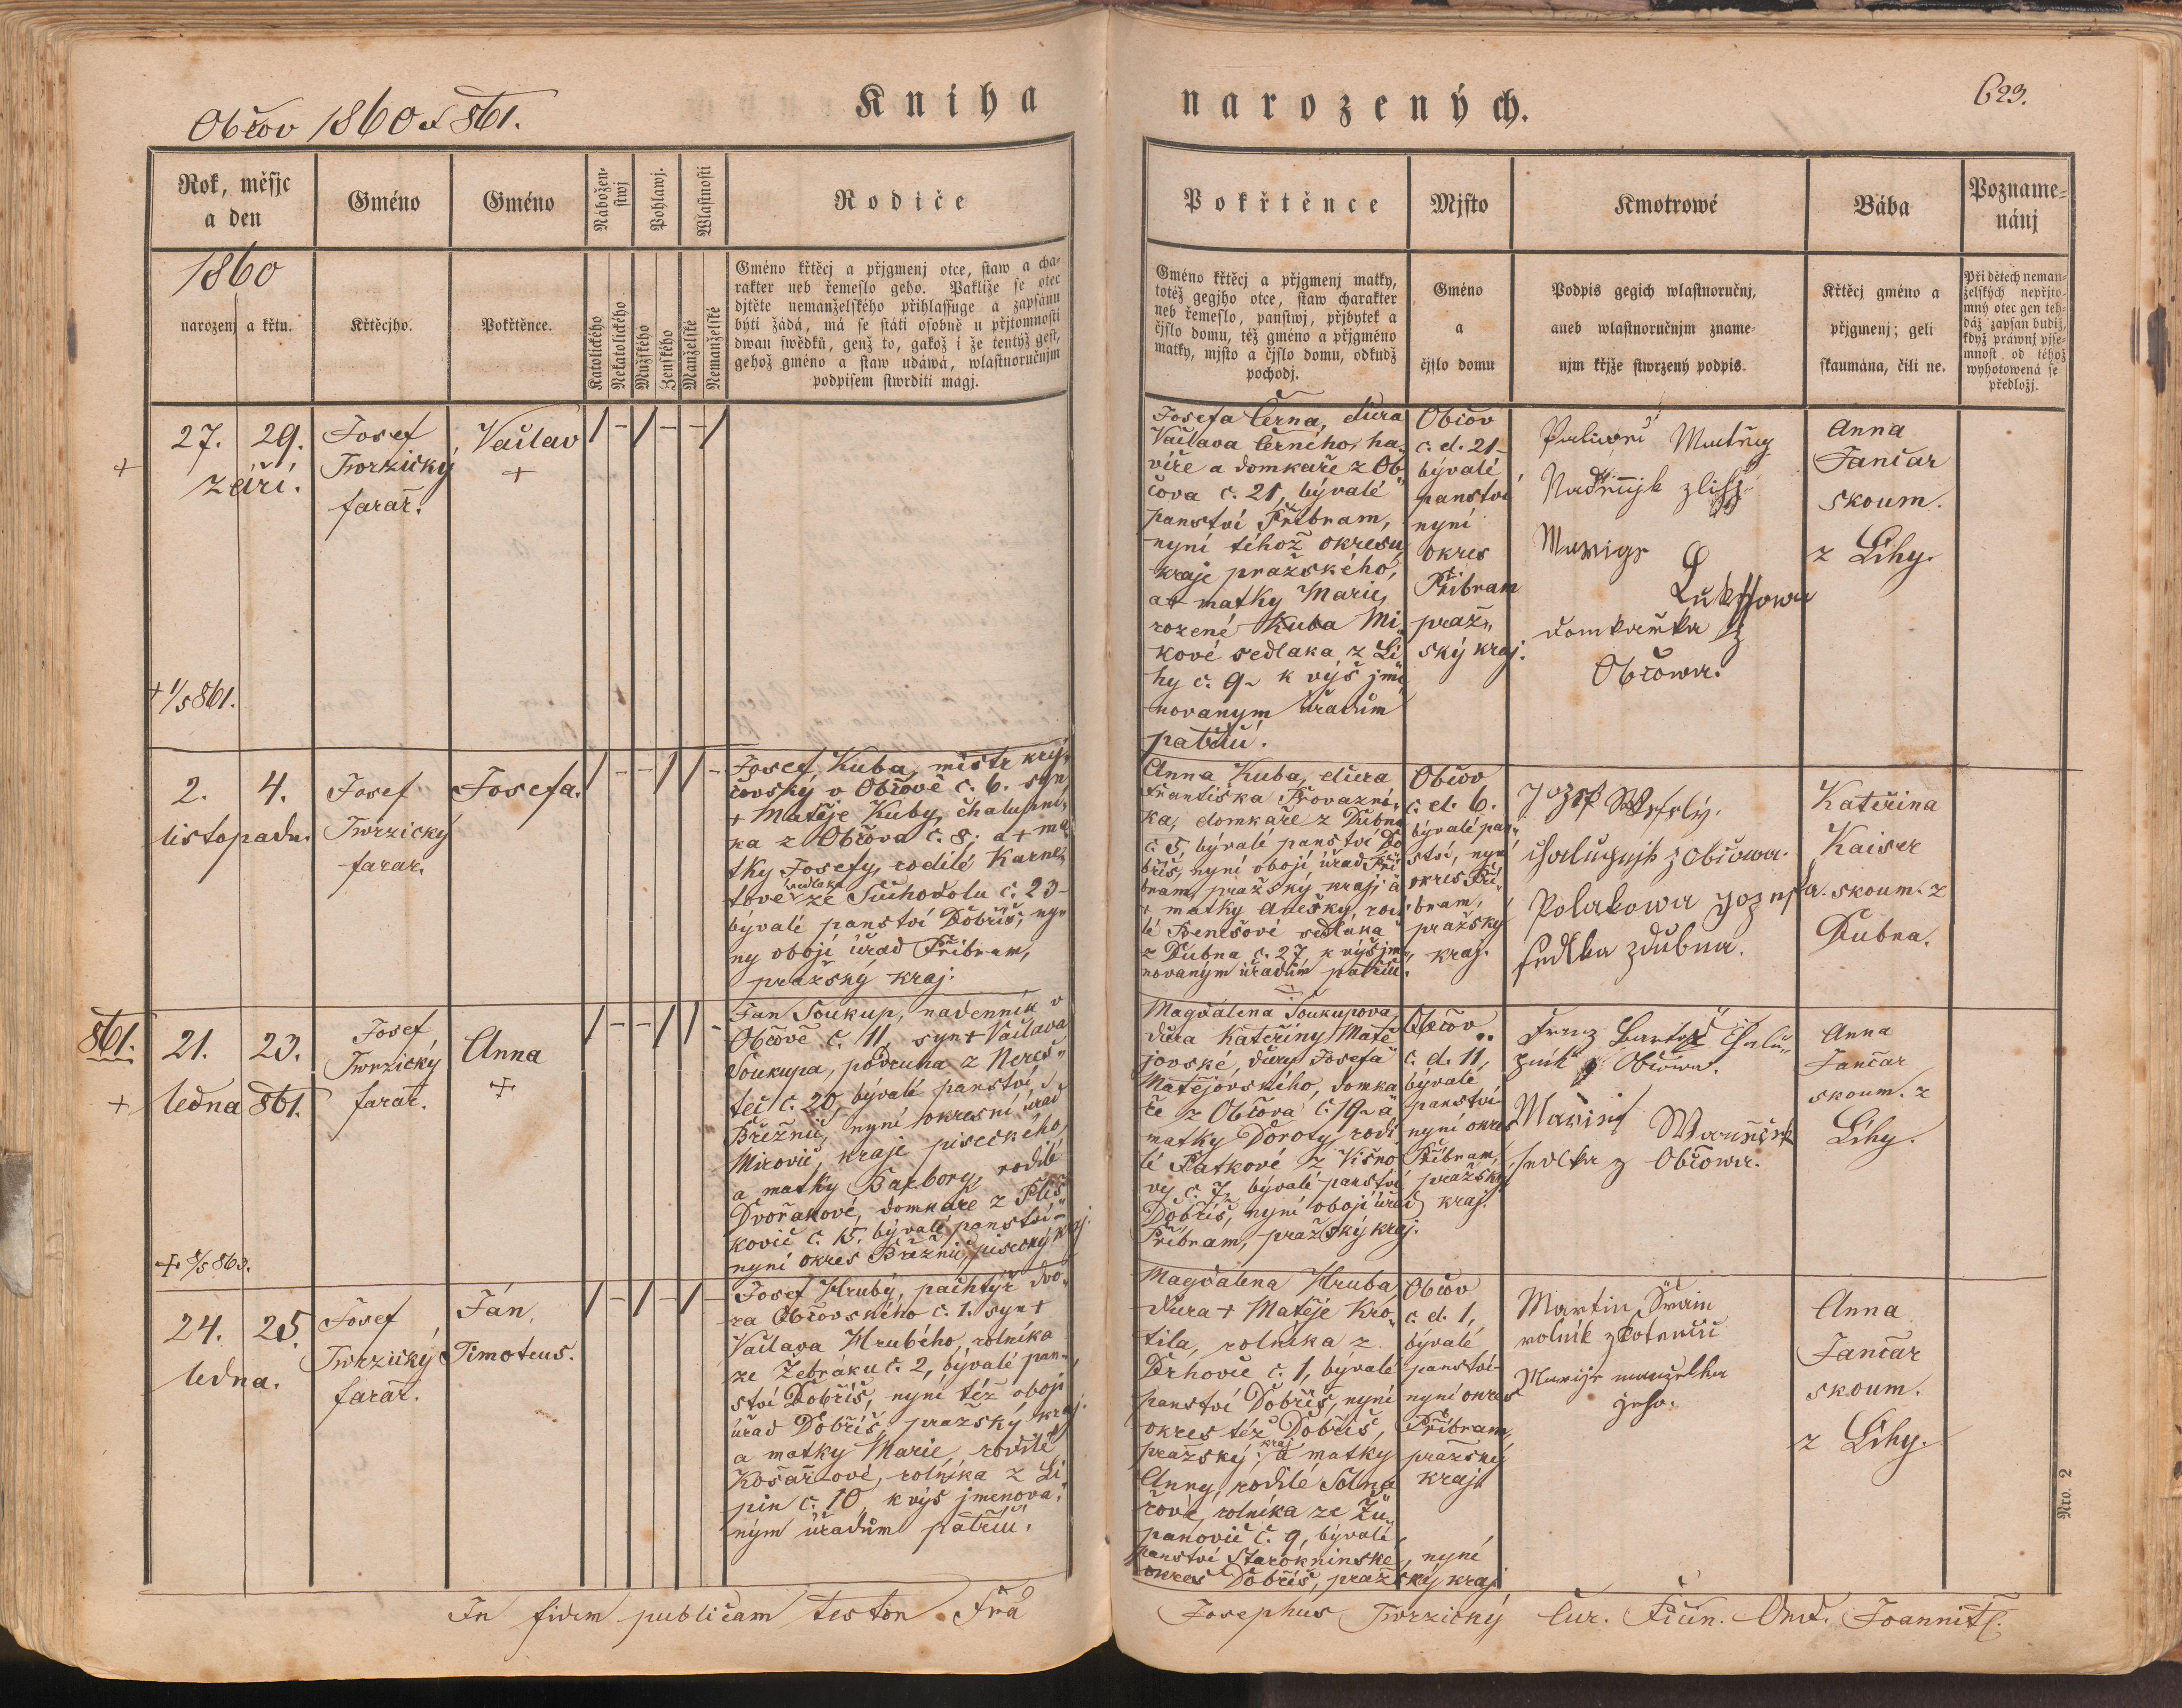 Občov 1860 et 861.
Kniha narozených.
623.
Rok, měsjc
a den
Gméno
Gméno
Nábožen-
stwj
Pohlawj.
Wlastnosti
Rodiče
1860
narozenj a křtu.
Křtěcjho.
Pokřtěnce.
Katolického
Nekatolického
Mužského
Ženského
Manželské
Nemanželské
Gméno křtěcj a přjgmenj otce, staw a cha-
rakter neb řemeslo geho. Pakliže se otec
djtěte nemanželského přihlassuge a zapsánu
býti žádá, má se státi osobně u přjtomnosti
dwau swědků, genž to, gakož i že tentýž gest,
gehož gméno a staw udáwá, wlastnoručnjm
podpisem stwrditi magj.
27. 29.
září.
Josef
Twrzický
farař.
Václav
+
+
+ 1/5 861.
2. 4.
listopadu.
Josef
Twrzický
farar.
Josefa.
Josef Kuba, mistr krej-
čovský v Občově č. 6. syn
+ Matěje Kuby, chalupní-
ka z Občova č. 8; a + ma
tky Josefy, rodilé Karne-
tové sedlaka ze Suchodolu č. 23-
bývalé panství Dobříš; ny-
ny obojí úřad Příbram,
pražský kraj.
861.
21. 23.
ledna 861.
+
Josef
Twrzický
farař.
Anna
+
+ 8/5 863.
Jan Soukup, nadenník v
Občově č. 11, syn + Václava
Soukupa, podruha z Nereš-
teč č. 20, bývalé panství
Březnic, nyní okresní úřad
Mirovic, kraje píseckého,
a matky Barbory, rodilé
Dvořakové, domkaře z Pleš-
kovic č. 15. bývalé panství-
nyní okres Březnic, písecký kraj.
24. 25.
ledna.
Josef
Twrzický
farař.
Ján,
Timoteus.
Josef Hrubý, pachtýř dvo-
ra Občovského č. 1. syn +
Václava Hrubého, rolníka
ze Žebráku č. 2, bývalé pan-
ství Dobříš, nyní též obojí
úřad Dobříš, pražský kraj.
a matky Marie, rodilé
Košařové, rolníka z Li
pin č. 10, k výš jmenova-
ným úřadům patřící.
In fidem publicam testor. Fra
Pokřtěnce
Mjsto
Kmotrowé
Bába
Pozname-
nánj
Gméno křtěcj a přjgmenj matky,
totéž gegjho otce, staw charakter
neb řemeslo, panstwj, přjbytek a
čjslo domu, též gméno a přjgméno
matky, mjsto a čjslo domu, odkudž
pochodj.
Gméno
a
čjslo domu
Podpis gegich wlastnoručnj,
aneb wlastnoručnjm zname-
njm křjže stwrzený podpis.
Křtěcj gméno a
přjgmenj; geli
skaumána, čili ne.
Při dětech neman-
želských nepřjto-
mný otec gen teh-
dáž zapsan budiž,
když práwnj pjse-
mnost od téhož
wyhotowená se
předložj.
Josefa Černa, dcera
Václava Černého, ha-
víře a domkaře z Ob
čova č. 21, bývalé
panství Příbram,
nyní téhož okresu,
kraje pražského,
a + matky Marie,
rozené Kuba Mi-
kové sedlaka z Li
hy č. 9- k výš jme
novanym úřadům
patřící.
Občov
č. d. 21-
bývalé
panství
nyní
okres
Příbram
praž-
ský kraj.
Marige
Lukssowa
domkařka z
Občowa.
Anna
Jančar
skoum.
z Lihy.
Anna Kuba, dcera
Františka Provazní-
ka, domkaře z Dubna
č. 5, bývalé panství Do
bříš, nyní obojí úřad Pří
bram, pražský kraj; a
+ matky Anešky, rodi-
lé Benešové sedlaka
z Dubna č. 27, k výš jme-
novaným úřadům patřící.
Občov
č. d. 6.
bývalé pan-
ství, nyní
okres Pří-
bram,
pražský
kraj.
Jozef Wesely.
chalupnjk z Občowa.
Polakowa Jozefa.
sedlka z Dubna.
Kateřina
Kaiser
skoum. z
Dubna.
Magdalena Soukupova,
dcera Kateřiny Matě
jovské, dcery Josefa
Matějovského, domka
ře z Občova č. 19- a
matky Doroty, rodi
lé Patkové z Višňo
vy č. 7, bývalé panství
Dobříš, nyní obojí úřad
Příbram, pražský kraj.
Občov
č. d. 11,
bývalé
panství-
nyní okres
Příbram,
pražský
kraj.
sedlka z Občowa.
Anna
Jančar
skoum. z
Lihy.
Magdalena Hruba,
dcera + Matěje Kro-
tila, rolníka z
Drhovic č. 1, bývalé
panství Dobříš, nyní
okres též Dobříš,
pražský kraj; a matky
Anny, rodilé Solna
řové, rolníka ze Žu-
panovic č. 9, bývalé
panství Staroknínské, nyní
okres Dobříš, pražský kraj.
Občov
č. d. 1,
bývalé
panství-
nyní okres
Příbram,
pražský
kraj.
Martin
rolník z
Marije manželka
geho.
Anna
Jančar
skoum.
z Lihy.
Nro. 2
Josephus Twrzický Cur. Ord. Joannit.